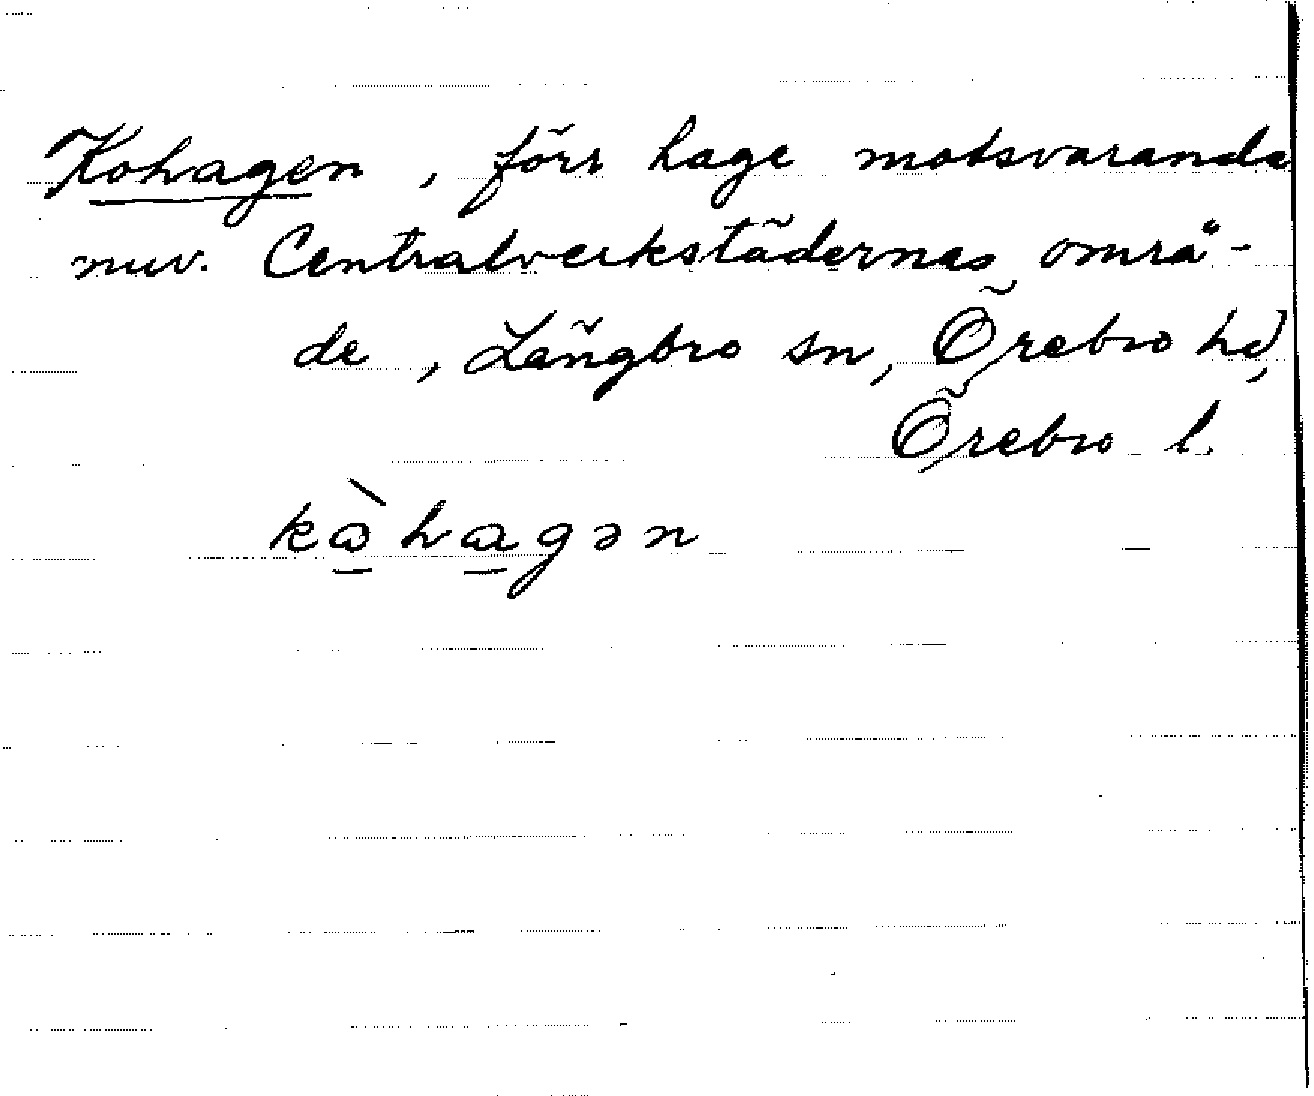 Kohagen, förr hage motsvarande
nuv. Centralverkstädernas områ-
de, Långbro sn, Örebro hd,
Örebro l.
kòhagən